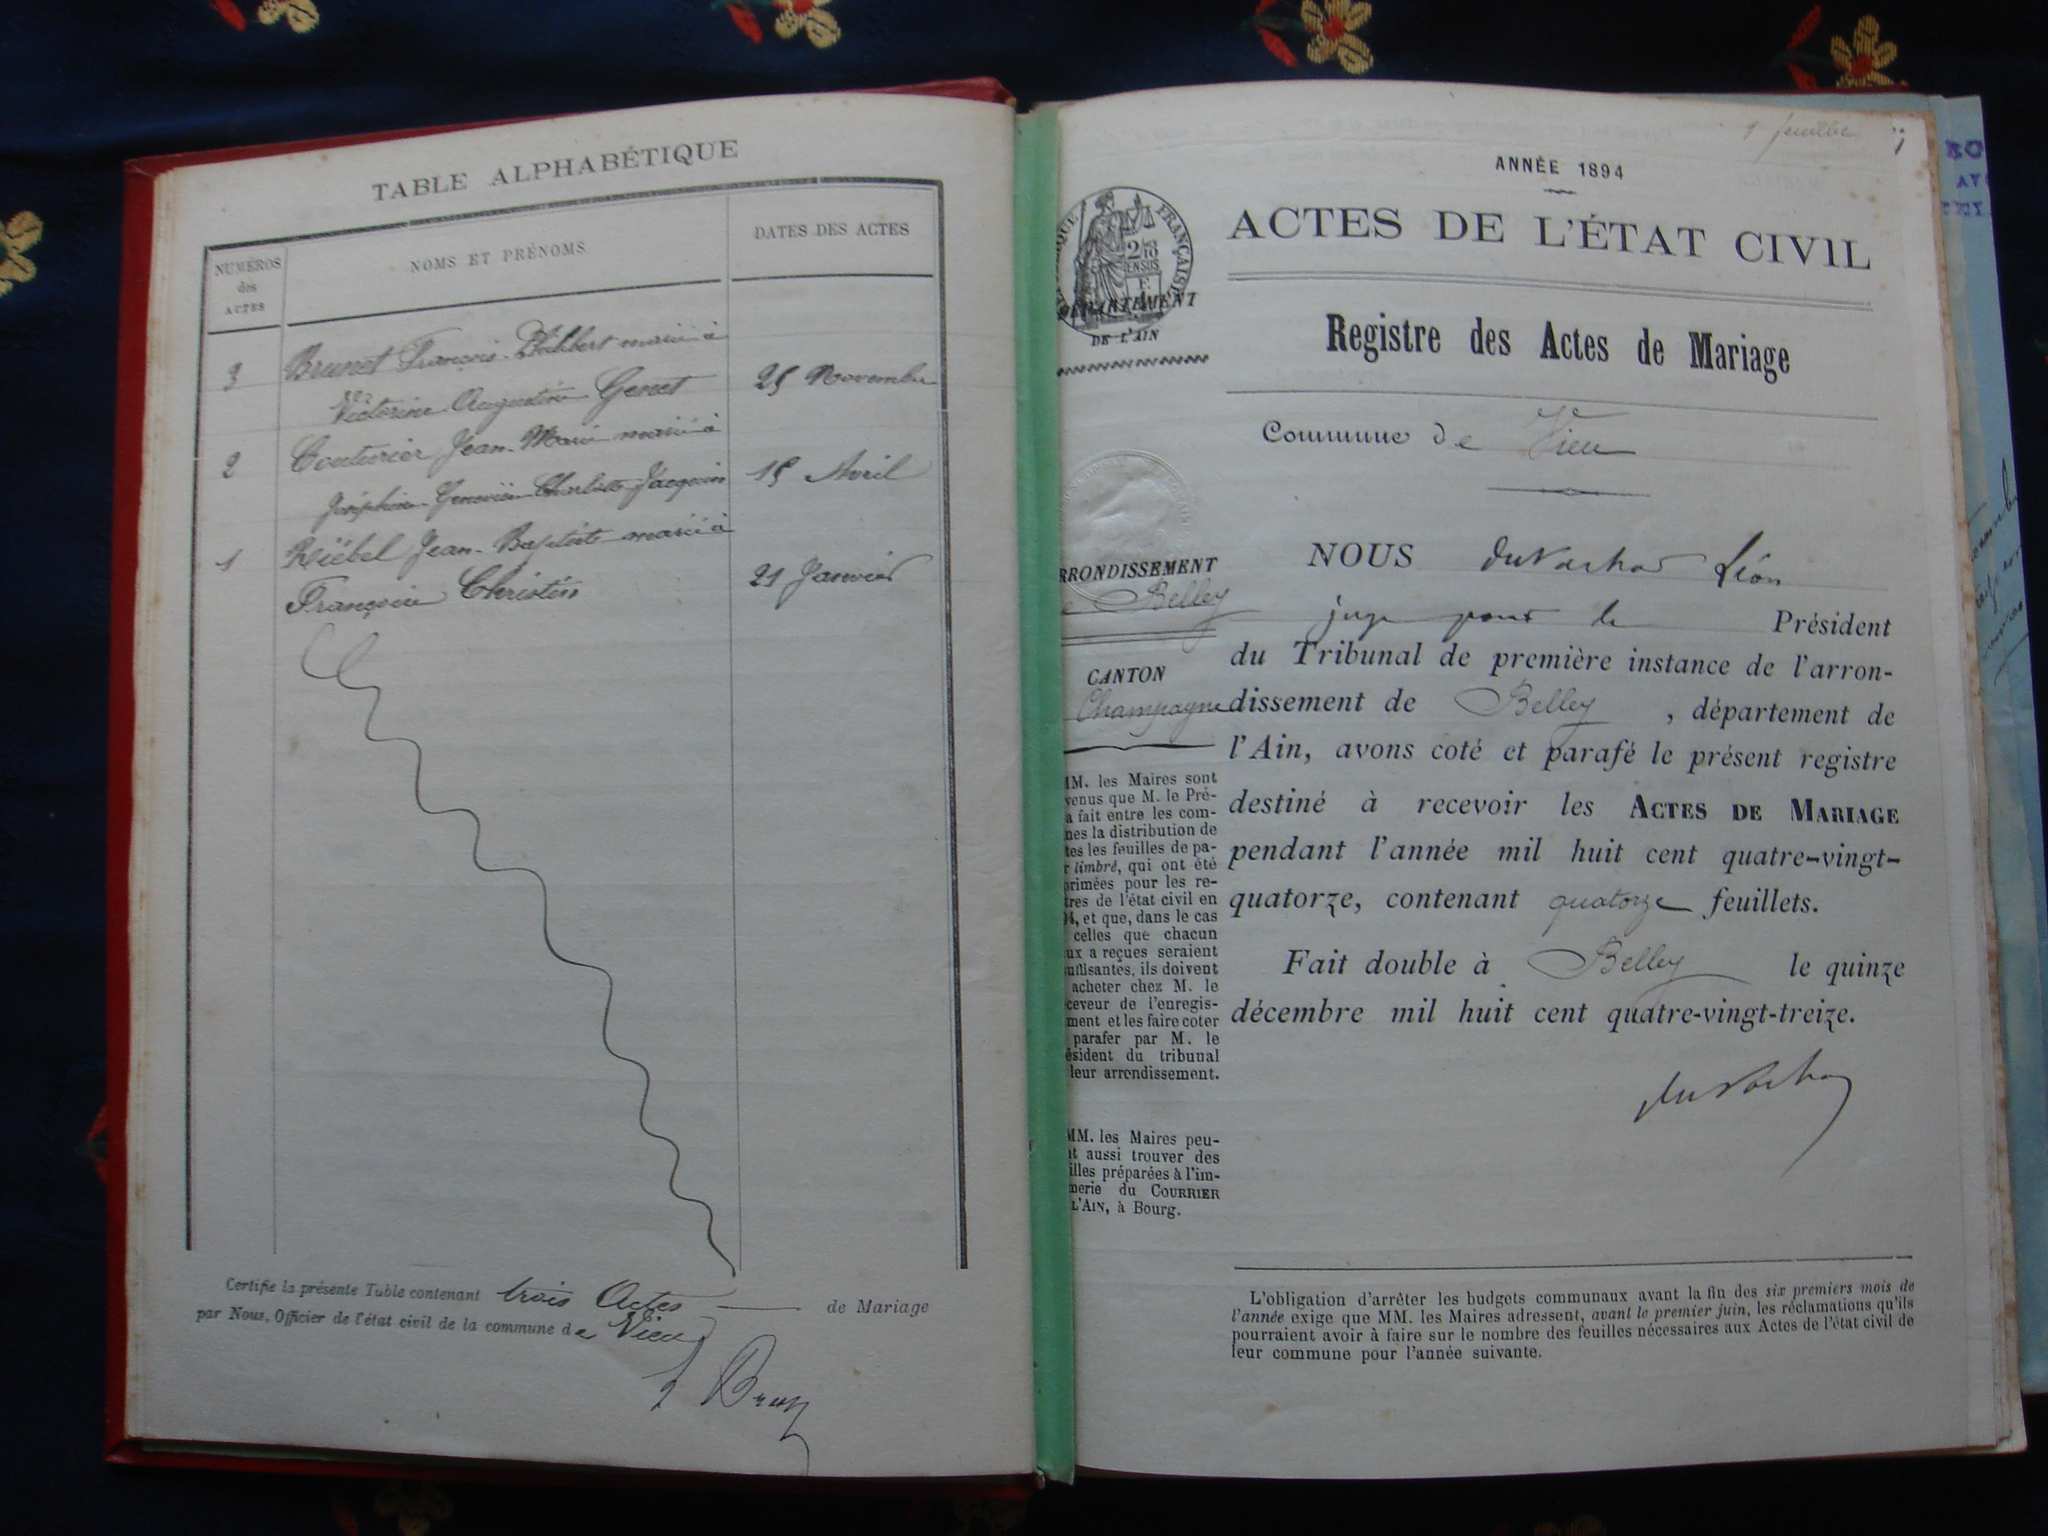 TABLE ALPHABÉTIQUE
NUMÉROS
des
ACTES
NOMS ET PRÉNOMS
DATES DES ACTES
3 Brunet François-Philibert marié à
Victorine Augustine Genet 25 Novembre
2 Couturier Jean-Marie marié à
Joséphine Geneviève Charlotte Jacquin 15 Avril
1 Riébel Jean-Baptiste marié à
Françoise Christin 21 Janvier
Certifie la présente Table contenant trois Actes de Mariage
par Nous, Officier de l'état civil de la commune de Vieu
1 feuillet
ANNÉE 1894
ACTES DE L'ÉTAT CIVIL
FRANÇAISE
DÉPARTEMENT
DE L'AIN
Registre des Actes de Mariage
Commune de Vieu
RRONDISSEMENT
e Belley
CANTON
Champagne
NOUS Léon
juge pour le Président
du Tribunal de première instance de l'arron-
dissement de Belley, département de
l'Ain, avons coté et parafé le présent registre
destiné à recevoir les ACTES DE MARIAGE
pendant l'année mil huit cent quatre-vingt-
quatorze, contenant quatorze feuillets.
Fait double à Belley le quinze
décembre mil huit cent quatre-vingt-treize.
MM. les Maires sont
venus que M. le Pré-
a fait entre les com-
nes la distribution de
tes les feuilles de pa-
r timbré, qui ont été
primées pour les re-
tres de l'état civil en
94, et que, dans le cas
celles que chacun
ux a reçues seraient
uffisantes, ils doivent
acheter chez M. le
ceveur de l'enregis-
ment et les faire coter
parafer par M. le
ésident du tribunal
leur arrondissement.
MM. les Maires peu-
nt aussi trouver des
illes préparées à l'im-
merie du COURRIER
L'AIN, à Bourg.
L'obligation d'arrêter les budgets communaux avant la fin des six premiers mois de
l'année exige que MM. les Maires adressent, avant le premier juin, les réclamations qu'ils
pourraient avoir à faire sur le nombre des feuilles nécessaires aux Actes de l'état civil de
leur commune pour l'année suivante.